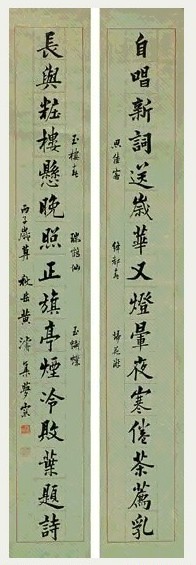 自唱新詞送歲華又燈暈夜寒倦茶薦乳
思佳客
燭影搖
掃花游
長與粧樓懸晚照正旗亭煙冷敗葉題詩
玉樓春
瑞鶴仙
玉蝴蝶
丙子歲冥 秋岳黃濬集夢窗